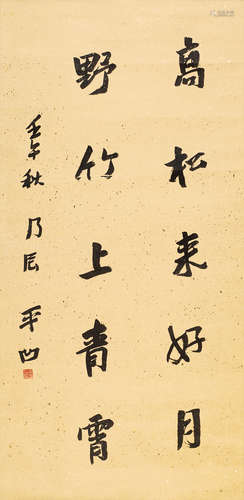 高松来好月
野竹上青霄
壬午秋 乃辰 平凹